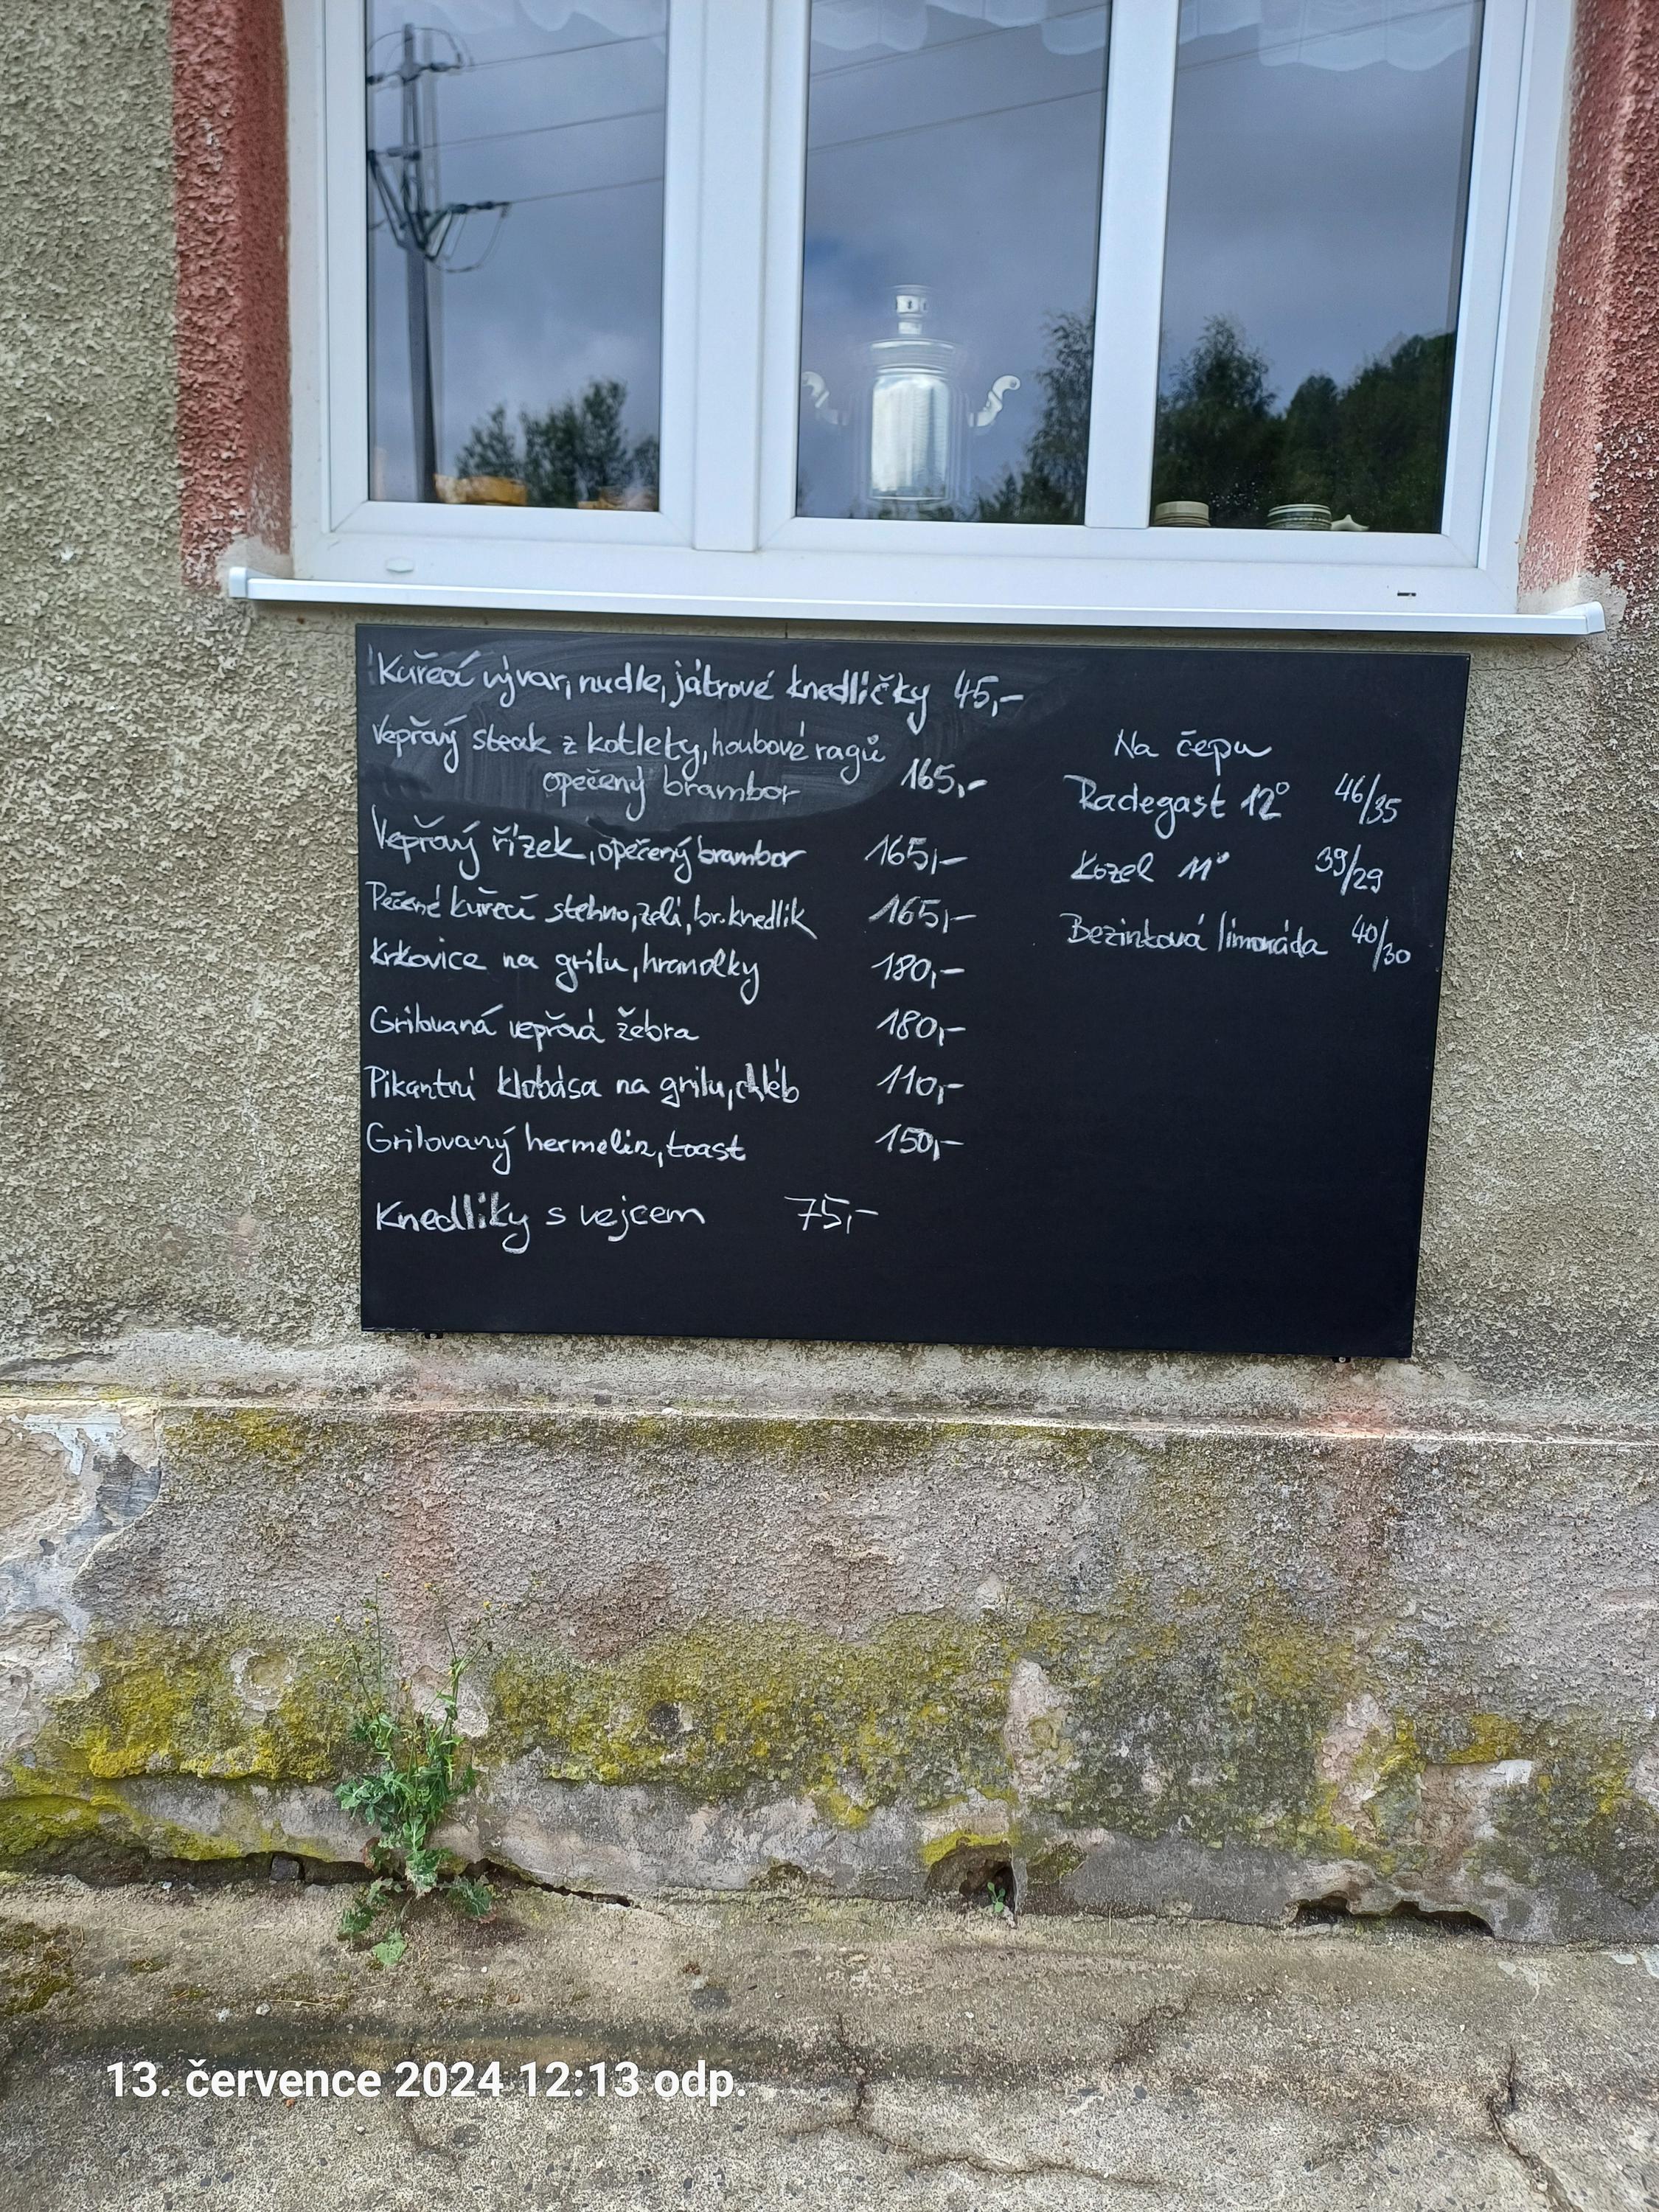 Kuřecí vývar, nudle, játrové knedlíčky 45,-
Vepřový steak z kotlety, houbové ragů
opečený brambor 165,-
Vepřový řízek, opečený brambor 165,-
Pečené kuřecí stehno, zelí, br. knedlík 165,-
Krkovice na grilu, hranolky 180,-
Grilovaná vepřová žebra 180,-
Pikantní klobása na grilu, chléb 110,-
Grilovaný hermelín, toast 150,-
Knedlíky s vejcem 75,-
Na čepu
Radegast 12° 46/35
Kozel 11° 39/29
Bezinková limonáda 40/30
13. července 2024 12:13 odp.